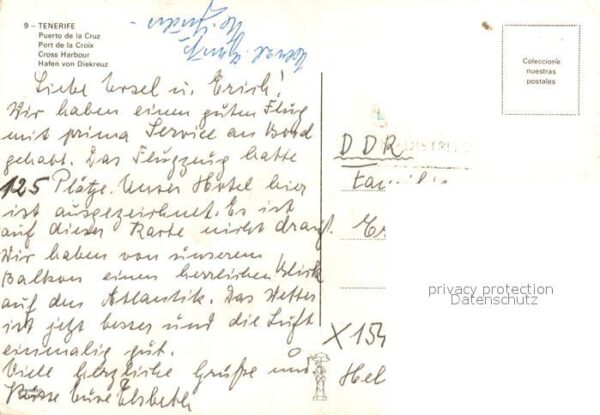 9 – TENERIFE
Puerto de la Cruz
Port de la Croix
Cross Harbour
Hafen von Diekreuz
Coleccione
nuestras
postales
Liebe Ursel u. Erich!
Wir haben einen guten Flug
mit prima Service an Bord
gehabt. Das Flugzeug hatte
125 Plätze. Unser Hotel hier
ist ausgezeichnet. Es ist
auf dieser Karte nicht drauf.
Wir haben von unserem
Balkon einen herrlichen Blick
auf den Atlantik. Das Wetter
ist jetzt besser und die Luft
einmalig gut.
Viele herzliche Grüße und
Küsse Eure Elsbeth
DDR
Fa
X 154
Hel
privacy protection
Datenschutz